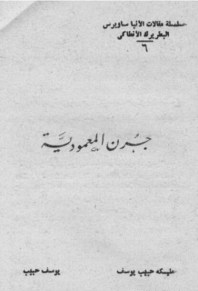 سلسلة مقالات الأنبا ساويرس
البطريرك الأنطاكي
٦
جرن المعمودية
مليكه حبيب يوسف
يوسف حبيب